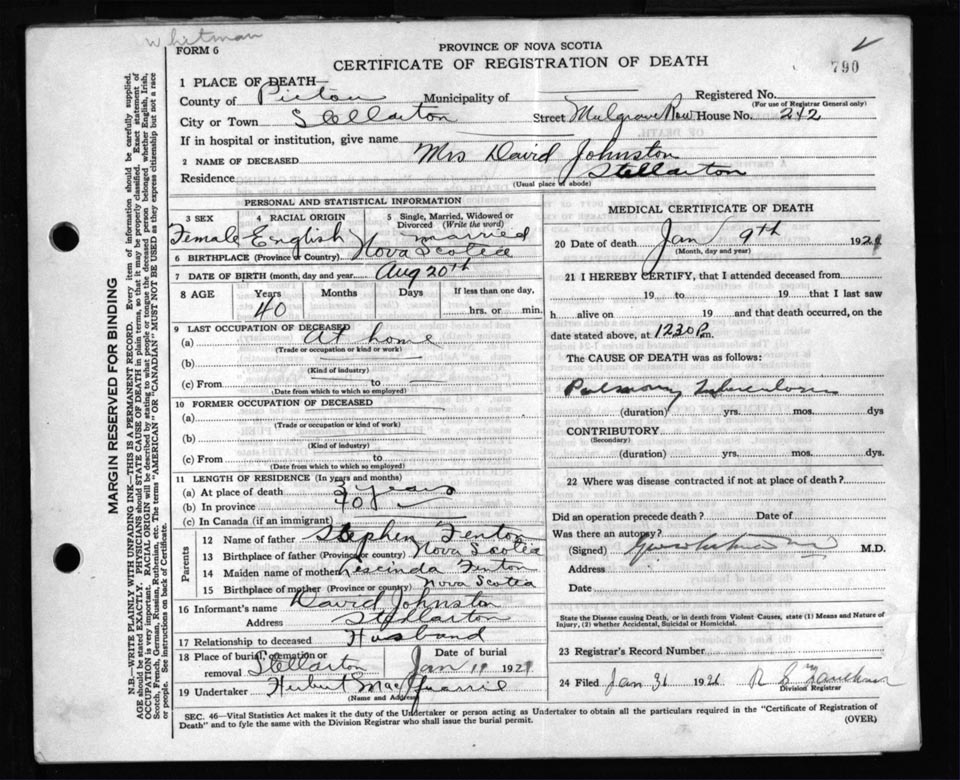 whitman
FORM 6
PROVINCE OF NOVA SCOTIA
CERTIFICATE OF REGISTRATION OF DEATH
790
1 PLACE OF DEATH—
County of Pictou Municipality of Registered No.
(For use of Registrar General only)
City or Town Stellarton Street Mulgrave Row House No. 242
If in hospital or institution, give name
2 NAME OF DECEASED Mrs David Johnston
Residence Stellarton
(Usual place of abode)
PERSONAL AND STATISTICAL INFORMATION
3 SEX 4 RACIAL ORIGIN 5 Single, Married, Widowed or Divorced (Write the word)
Female English married
6 BIRTHPLACE (Province or Country) Nova Scotia
7 DATE OF BIRTH (month, day and year) Aug 20th
8 AGE Years Months Days If less than one day,
40 hrs. or min.
9 LAST OCCUPATION OF DECEASED
(a) At home
(Trade or occupation or kind or work)
(b)
(Kind of industry)
(c) From to
(Date from which to which so employed)
10 FORMER OCCUPATION OF DECEASED
(a)
(Trade or occupation or kind of work)
(b)
(Kind of industry)
(c) From to
(Date from which to which so employed)
11 LENGTH OF RESIDENCE (In years and months)
(a) At place of death years
(b) In province 40
(c) In Canada (if an immigrant)
Parents
12 Name of father Stephen Fenton
13 Birthplace of father (Province or country) Nova Scotia
14 Maiden name of mother Fenton
15 Birthplace of mother (Province or country) Nova Scotia
16 Informant's name David Johnston
Address Stellarton
17 Relationship to deceased Husband
18 Place of burial, cremation or removal Stellarton Date of burial Jan 11 192
19 Undertaker Herbert MacQuarrie
(Name and Address)
MEDICAL CERTIFICATE OF DEATH
20 Date of death Jan 9th 192
(Month, day and year)
21 I HEREBY CERTIFY, that I attended deceased from
19 to 19 that I last saw
h alive on 19 and that death occurred, on the
date stated above, at 12 30 P m.
The CAUSE OF DEATH was as follows:
Pulmonary Tuberculosis
(duration) yrs. mos. dys
CONTRIBUTORY
(Secondary)
(duration) yrs. mos. dys.
22 Where was disease contracted if not at place of death?
Did an operation precede death? Date of
Was there an autopsy?
(Signed) M.D.
Address
Date
State the Disease causing Death, or in death from Violent Causes, state (1) Means and Nature of
Injury, (2) whether Accidental, Suicidal or Homicidal.
23 Registrar's Record Number
24 Filed Jan 31 192
Division Registrar
SEC. 46—Vital Statistics Act makes it the duty of the Undertaker or person acting as Undertaker to obtain all the particulars required in the "Certificate of Registration of
Death" and to fyle the same with the Division Registrar who shall issue the burial permit.
(OVER)
MARGIN RESERVED FOR BINDING
N.B.—WRITE PLAINLY WITH UNFADING INK—THIS IS A PERMANENT RECORD. Every item of information should be carefully supplied.
AGE should be stated EXACTLY. PHYSICIANS should STATE CAUSE OF DEATH in plain terms, so that it may be properly classified. Exact statement of
OCCUPATION is very important. RACIAL ORIGIN will be described by stating to what people or tongue the deceased person belonged whether English, Irish,
Scotch, French, German, Russian, Ruthenian, etc. The terms "AMERICAN" OR "CANADIAN" MUST NOT BE USED as they express citizenship but not a race
or people. See instructions on back of Certificate.